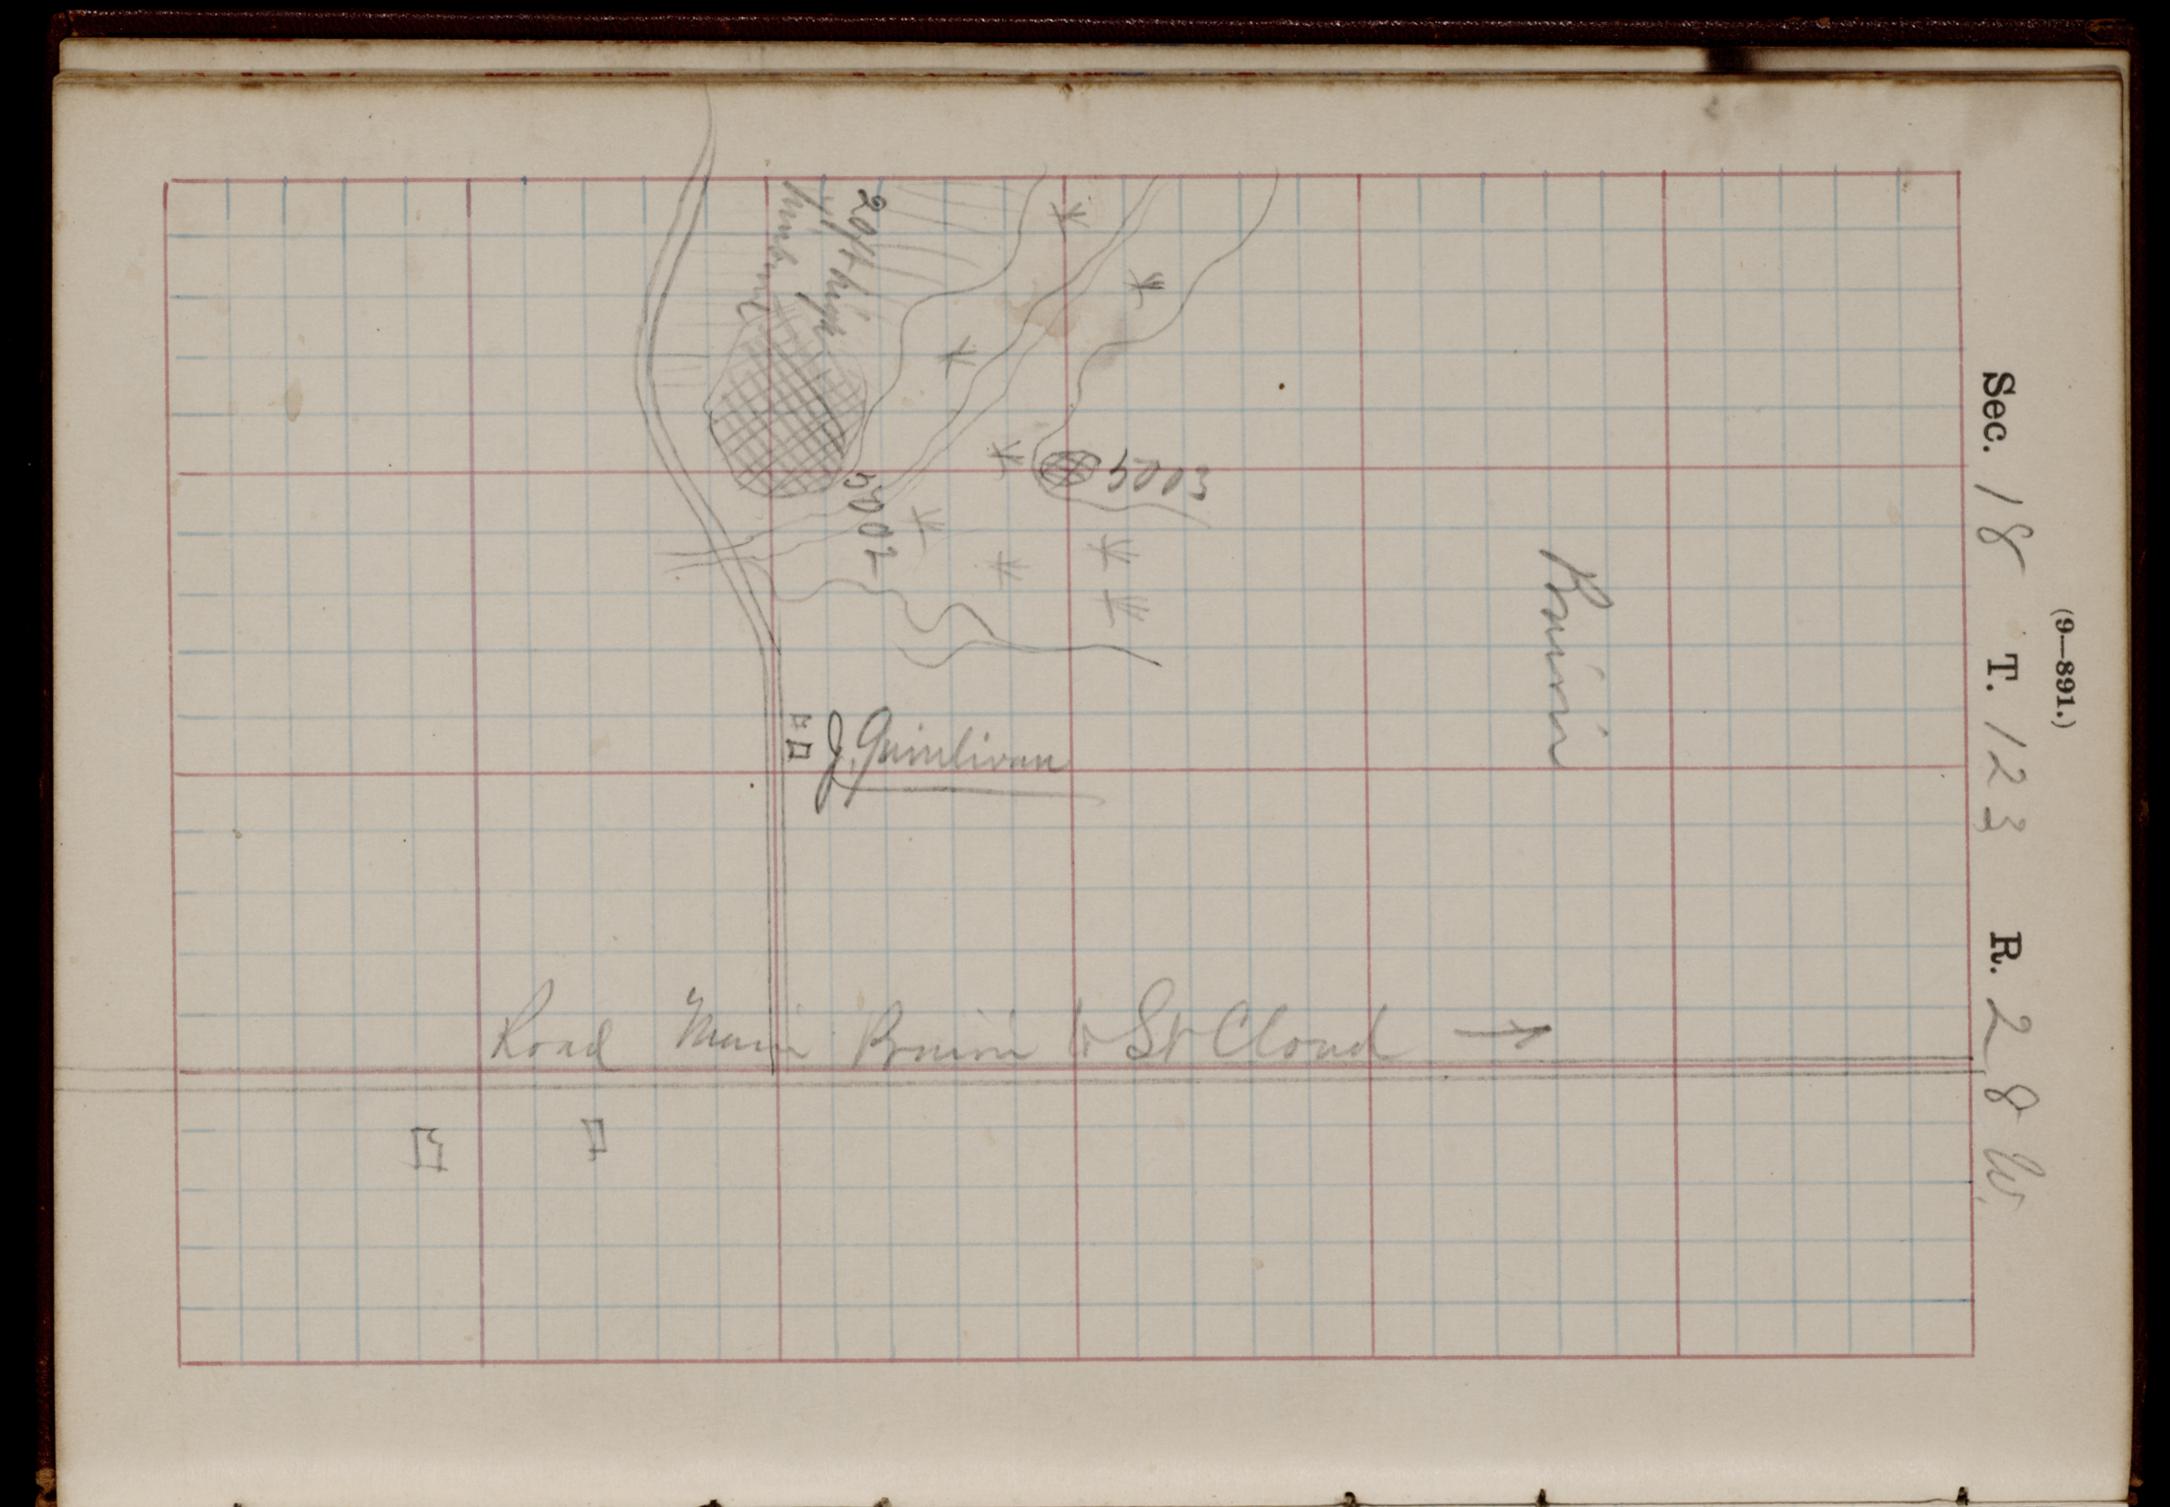 (9—891.)
Sec. 18 T. 123 R. 28 W.
Prairie
20 ft high
5002
5003
J. Quinlivan
Road Main Prairie to St Cloud →